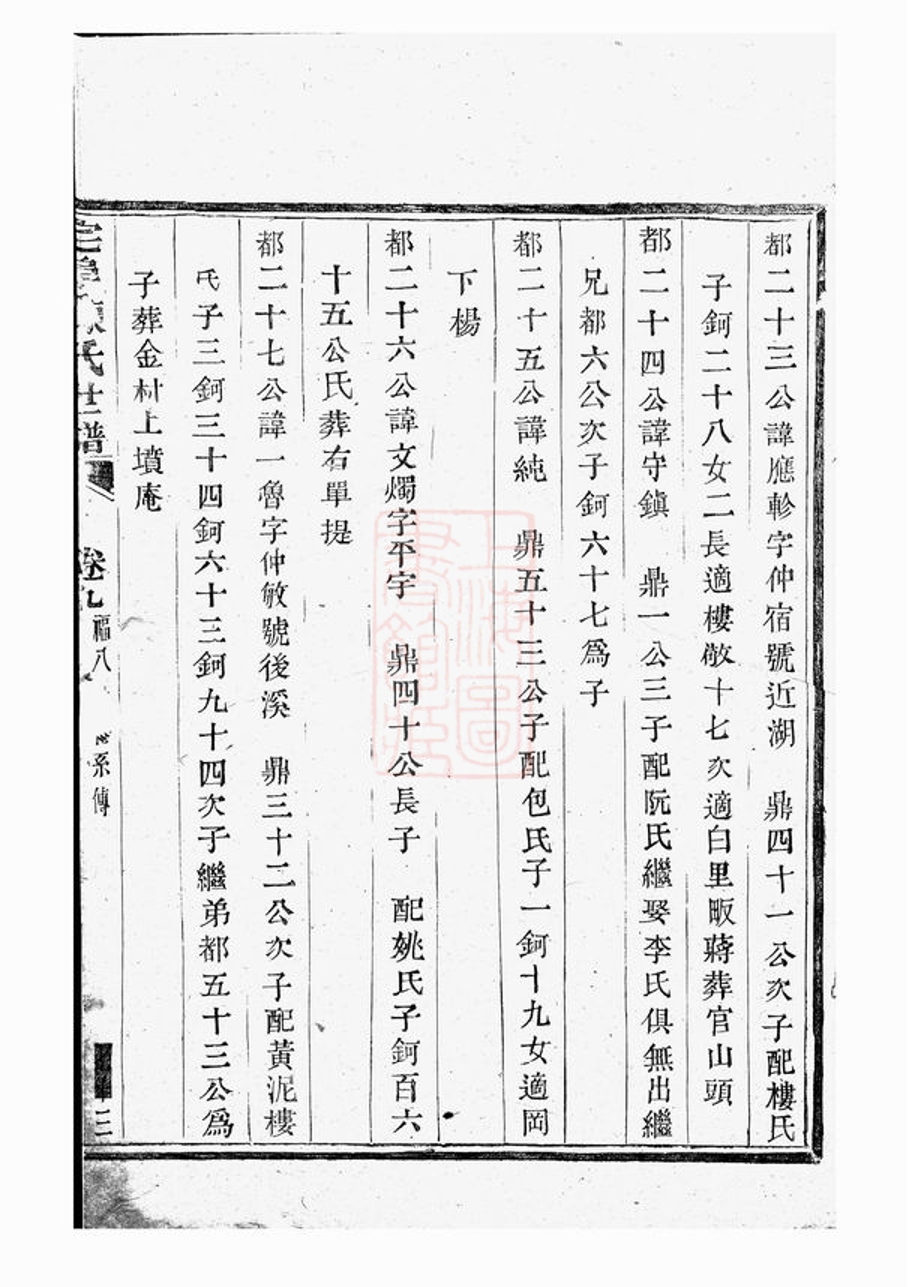 都二十三公諱應軫字仲宿號近湖　鼎四十一公次子配樓氏
子鈳二十八女二長適樓敬十七次適白里畈蔣葬官山頭
都二十四公諱守鎮　鼎一公三子配阮氏繼娶李氏俱無出繼
兄都六公次子鈳六十七爲子
都二十五公諱純　鼎五十三公子配包氏子一鈳十九女適岡
下楊
都二十六公諱文燭字平宇　鼎四十公長子　配姚氏子鈳百六
十五公氏葬右單提
都二十七公諱一魯字仲敏號後溪　鼎三十二公次子配黃泥樓
氏子三鈳三十四鈳六十三鈳九十四次子繼弟都五十三公爲
子葬金村上墳庵
氏世譜　卷九　福八　系傳　三
上海圖書館藏